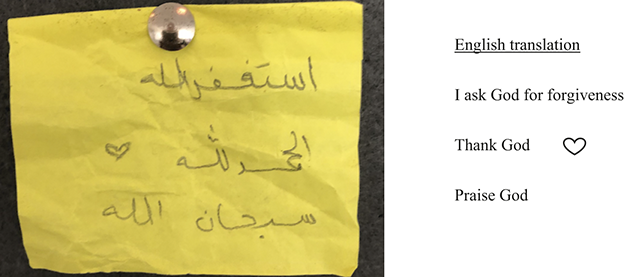 استغفر الله
الحمد لله ♡
سبحان الله
English translation
I ask God for forgiveness
Thank God ♡
Praise God